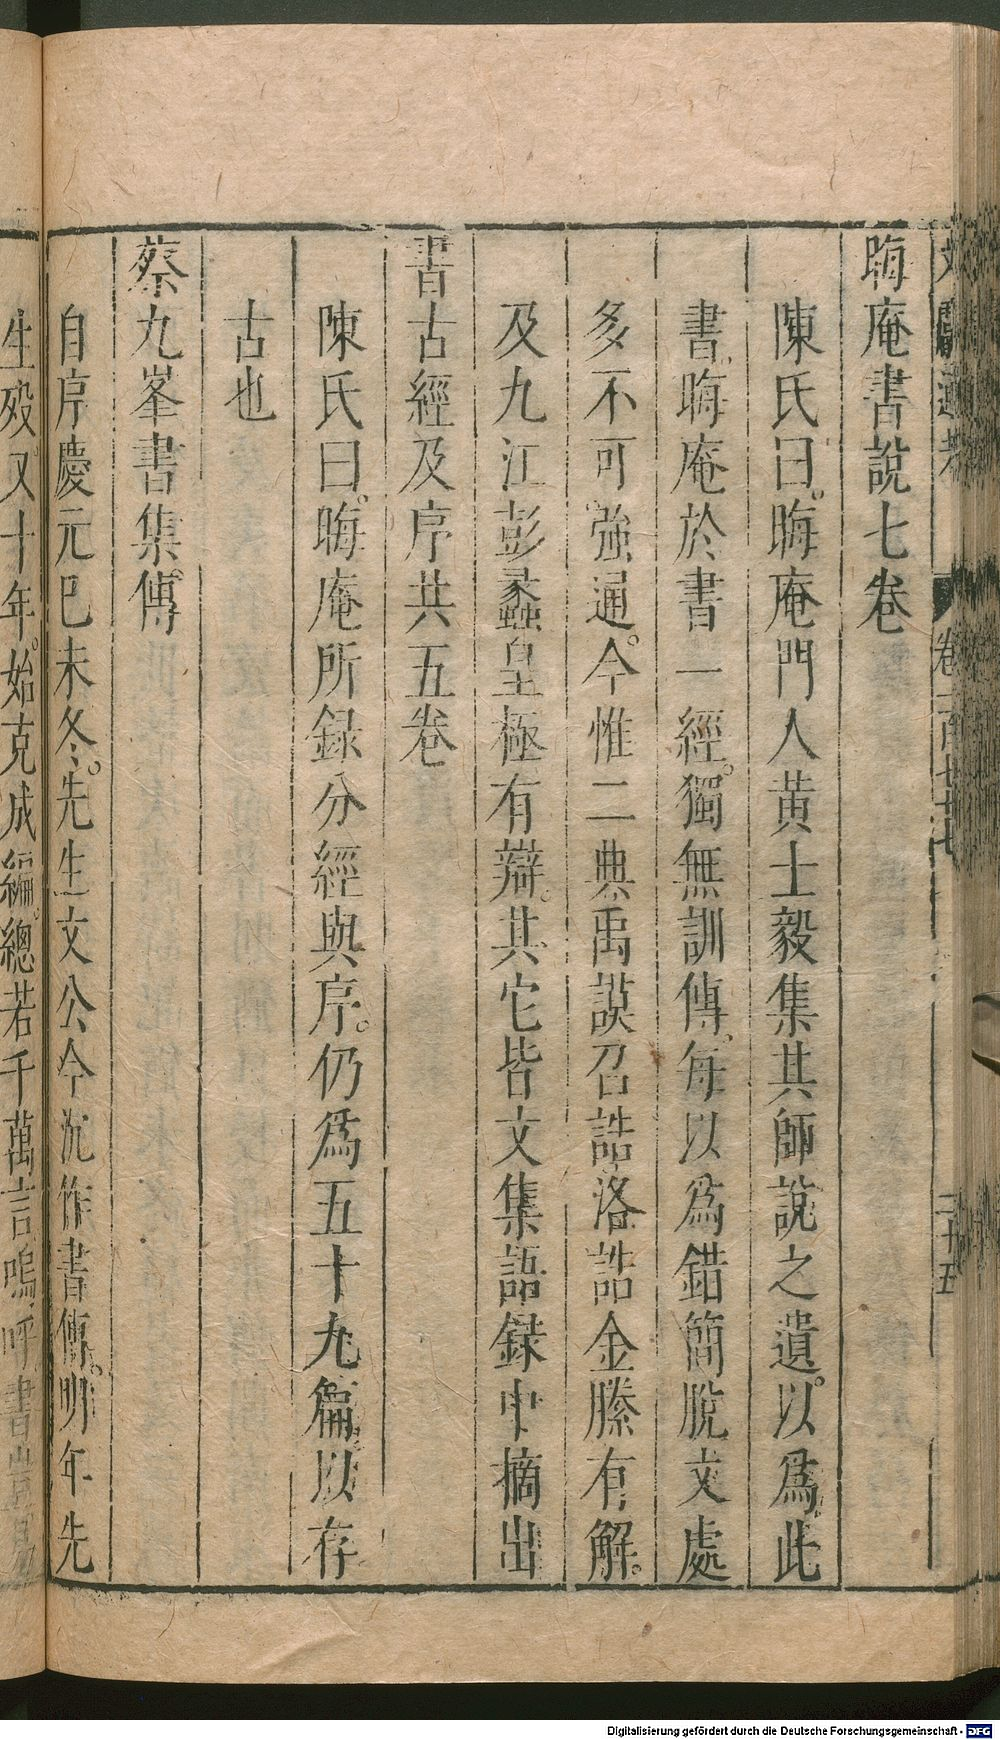 文獻通考 卷一百七十七 二十五
晦庵書說七卷
陳氏曰晦庵門人黃士毅集其師說之遺以爲此
書晦庵於書一經獨無訓傳每以爲錯簡脫文處
多不可強通今惟二典禹謨召誥洛誥金縢有解
及九江彭蠡皇極有辯其它皆文集語録中摘出
書古經及序共五卷
陳氏曰晦庵所録分經與序仍爲五十九篇以存
古也
蔡九峯書集傳
自序慶元巳未冬先生文公令沉作書傳明年先
生殁又十年始克成編總若干萬言嗚呼書豈易
Digitalisierung gefördert durch die Deutsche Forschungsgemeinschaft - DFG